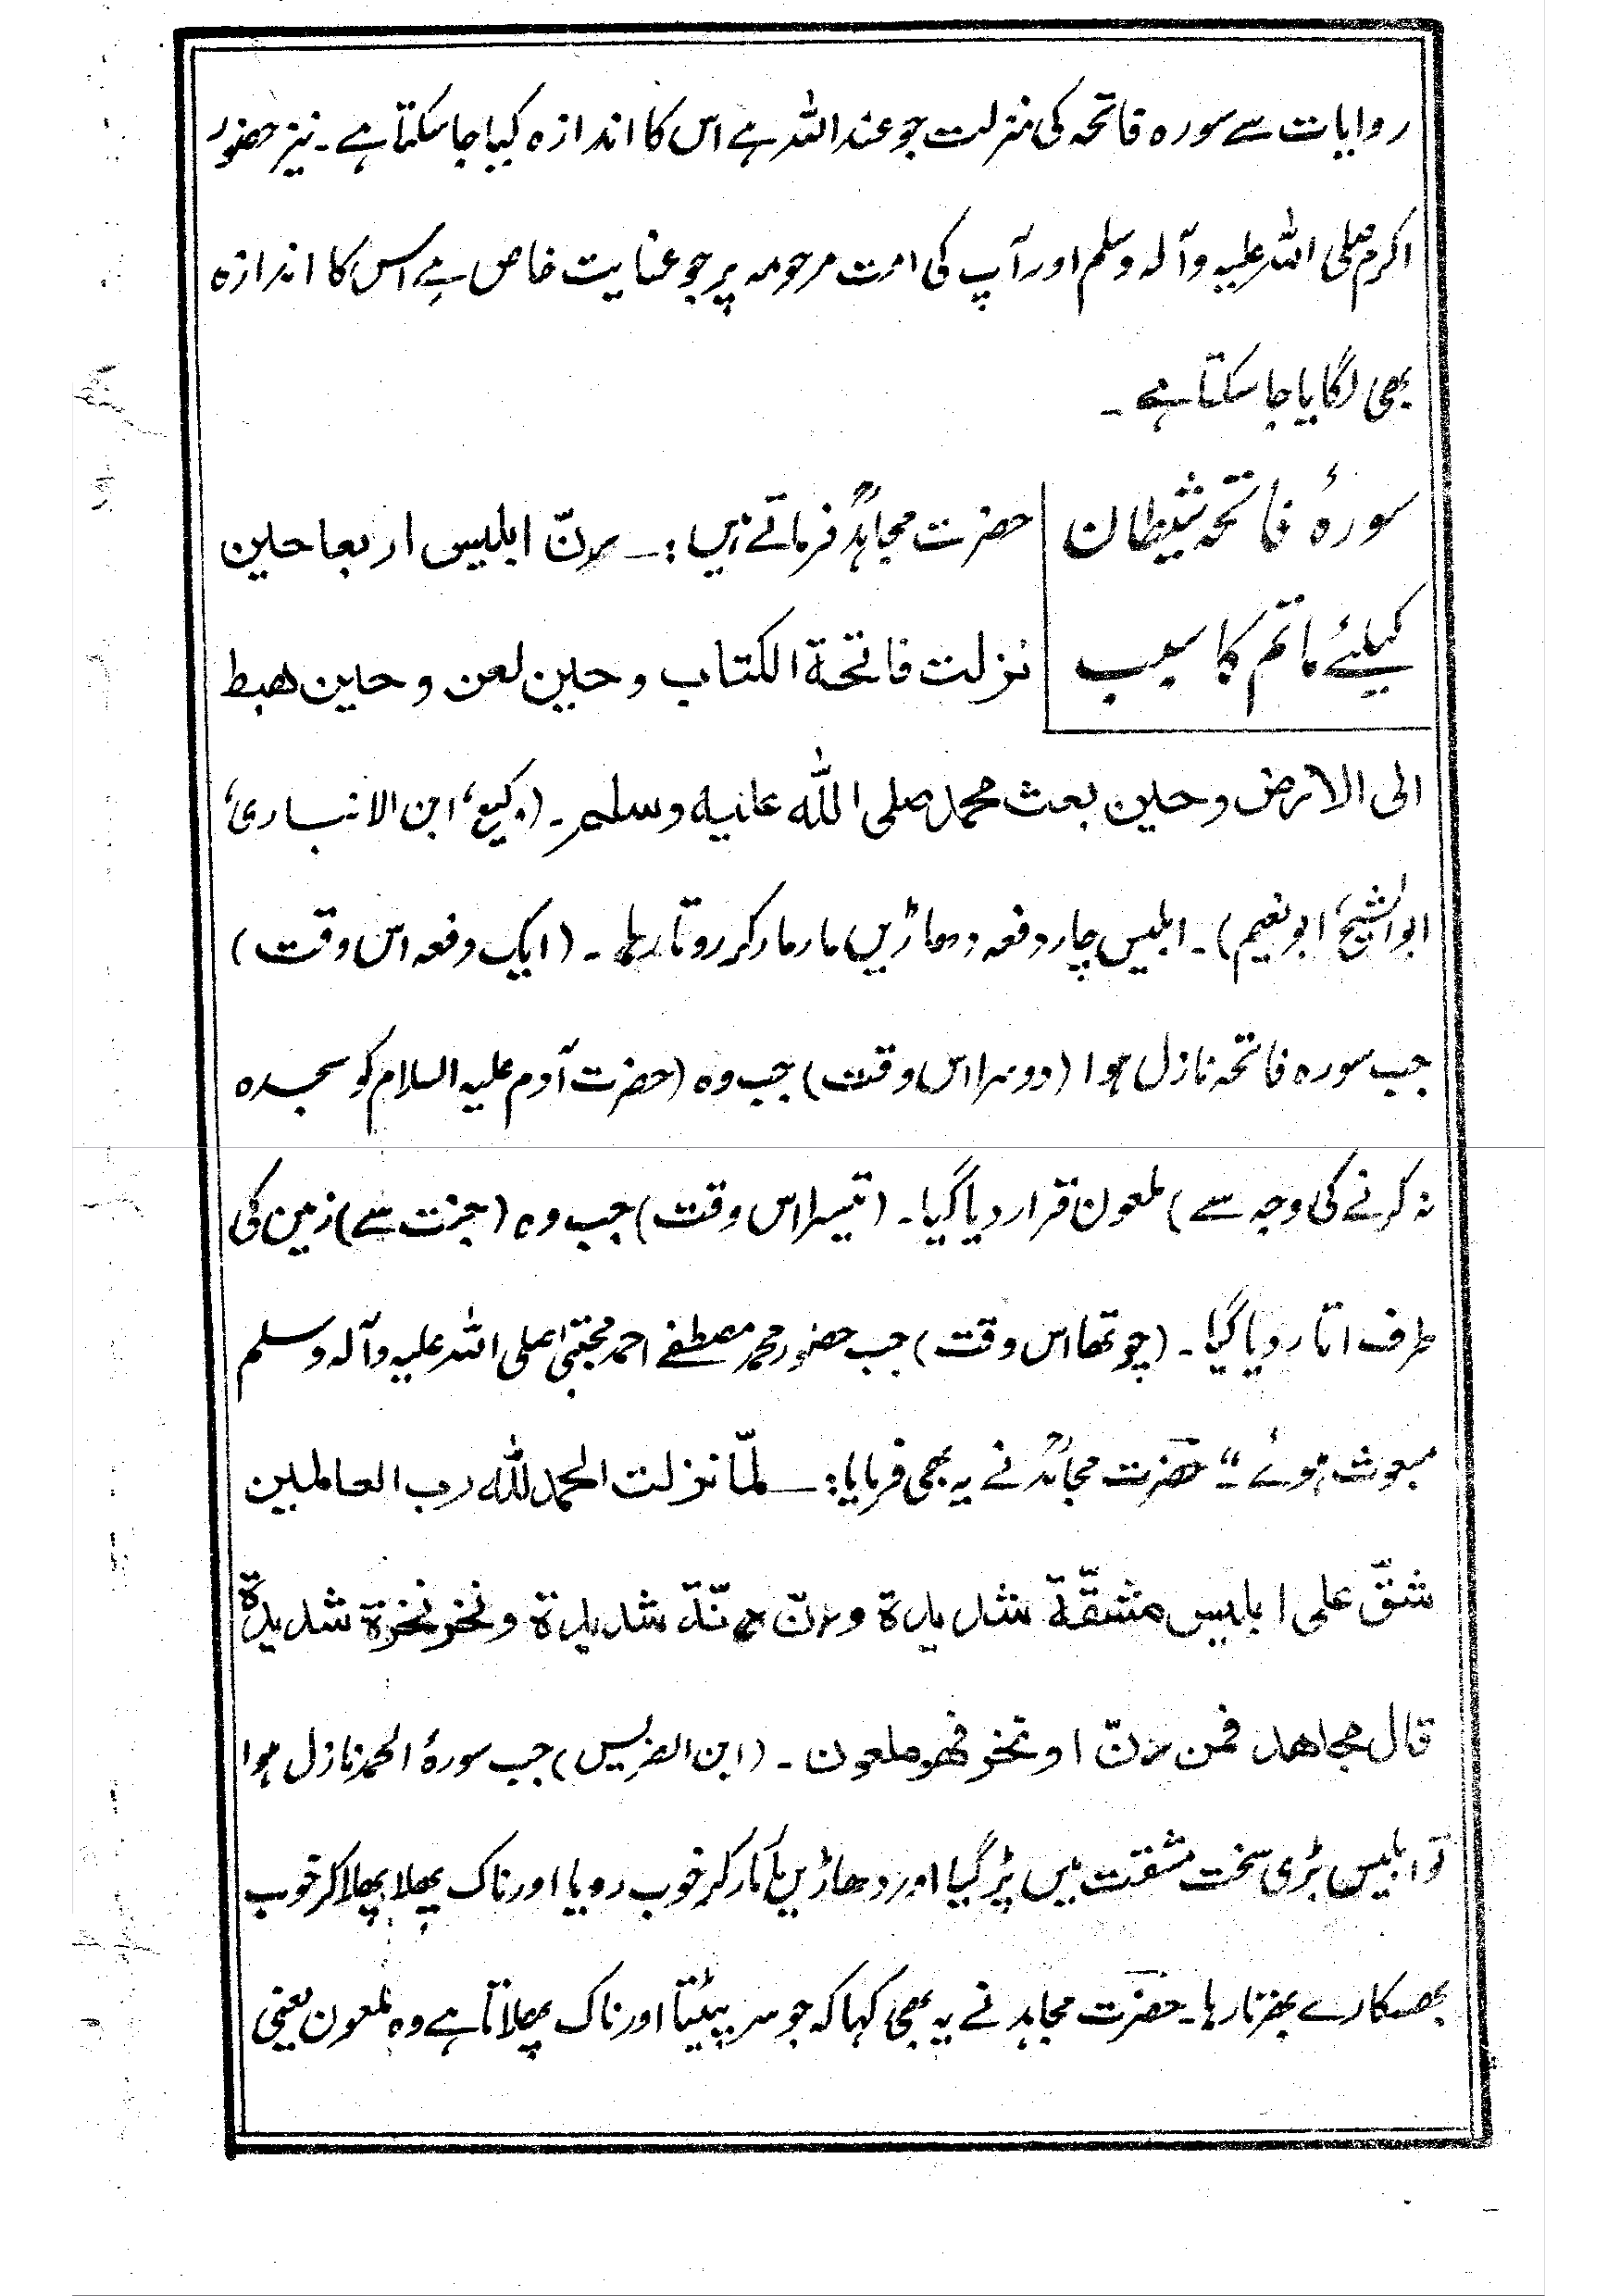 روایات سے سورہ فاتحہ کی منزلت جو عند اللہ ہے اس کا اندازہ کیا جا سکتا ہے۔ نیز حضور
اکرم صلی اللہ علیہ وآلہ وسلم اور آپ کی امت مرحومہ پر جو عنایت خاص ہے اس کا اندازہ
بھی لگایا جا سکتا ہے۔
سورۂ فاتحہ شیطان
کیلئے ماتم کا سبب
حضرت مجاہدؒ فرماتے ہیں :— رنّ ابلیس اربعا حین
نزلت فاتحة الکتاب وحین لعن وحین ھبط
الی الارض وحین بعث محمد صلی اللہ علیه وسلم۔ (وکیع، ابن الانباری،
ابوالشیخ، ابو نعیم)۔ ابلیس چار دفعہ دھاڑیں مار مار کر روتا رہا۔ (ایک دفعہ اس وقت)
جب سورہ فاتحہ نازل ہوا (دوسرا اس وقت) جب وہ (حضرت آدم علیہ السلام کو سجدہ
نہ کرنے کی وجہ سے) ملعون قرار دیا گیا۔ (تیسرا اس وقت) جب وہ (جنت سے) زمین کی
طرف اتار دیا گیا۔ (چوتھا اس وقت) جب حضور محمد مصطفےٰ احمد مجتبیٰ صلی اللہ علیہ وآلہ وسلم
مبعوث ہوئے"۔ حضرت مجاہدؒ نے یہ بھی فرمایا :— لمّا نزلت الحمد للہ رب العالمین
شقّ علی ابلیس مشقّة شدیدة ورنّ رنّة شدیدة ونخر نخرة شدیدة
قال مجاھد فمن رنّ او نخر فھو ملعون۔ (ابن الضریس) جب سورۂ الحمد نازل ہوا
تو ابلیس بڑی سخت مشقت میں پڑ گیا اور دھاڑیں مار مار کر خوب رویا اور ناک پھلا پھلا کر خوب
پھسکارے بھرتا رہا۔ حضرت مجاہد نے یہ بھی کہا کہ جو سر پیٹتا اور ناک پھلاتا ہے وہ ملعون یعنی